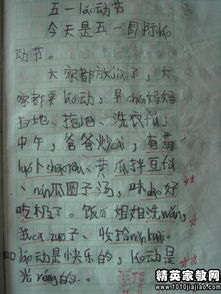 五一láo动节
今天是五一国际láo
动节。
大家都放jià了,大
家都要láo动,早chén妈妈
扫地、拖地、洗衣fu,
中午,爸爸炒cài,有
luó卜chǎo、黄瓜拌豆
nán瓜圆子汤,味dào好
吃极了。饭后姐姐洗wǎn,
我cā zuō子、收拾
láo动是快乐的,láo动是
光róng的。
精英家教网
www.1010jiajiao.com